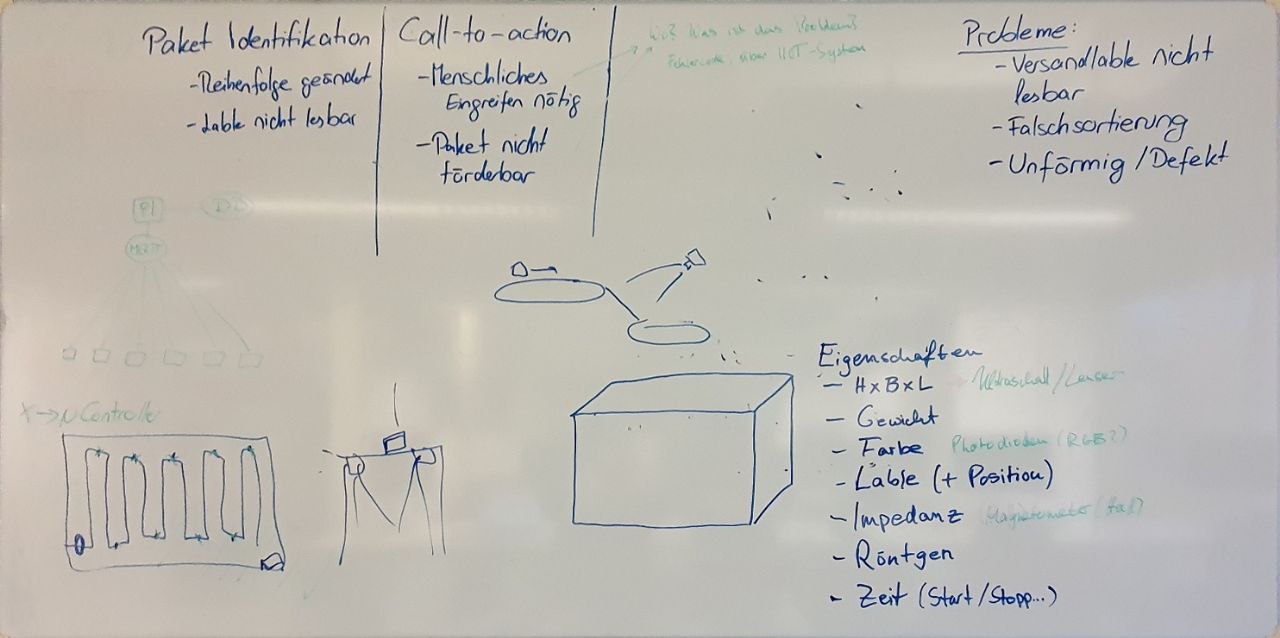 Paket Identifikation
-Reihenfolge geändert
- Lable nicht lesbar
Call-to-action
-Menschliches
Eingreifen nötig
-Paket nicht
förderbar
Wo? Was ist das Problem?
Fehlercode, über IIOT-System
Probleme:
-Versandlable nicht
lesbar
-Falschsortierung
-Unförmig/Defekt
PI
DB
MQTT
X→µController
Eigenschaften
- HxBxL Ultraschall/Laser
- Gewicht
- Farbe Photodioden (RGB?)
- Lable (+ Position)
- Impedanz Magnetometer/Hall
- Röntgen
- Zeit (Start/Stopp...)